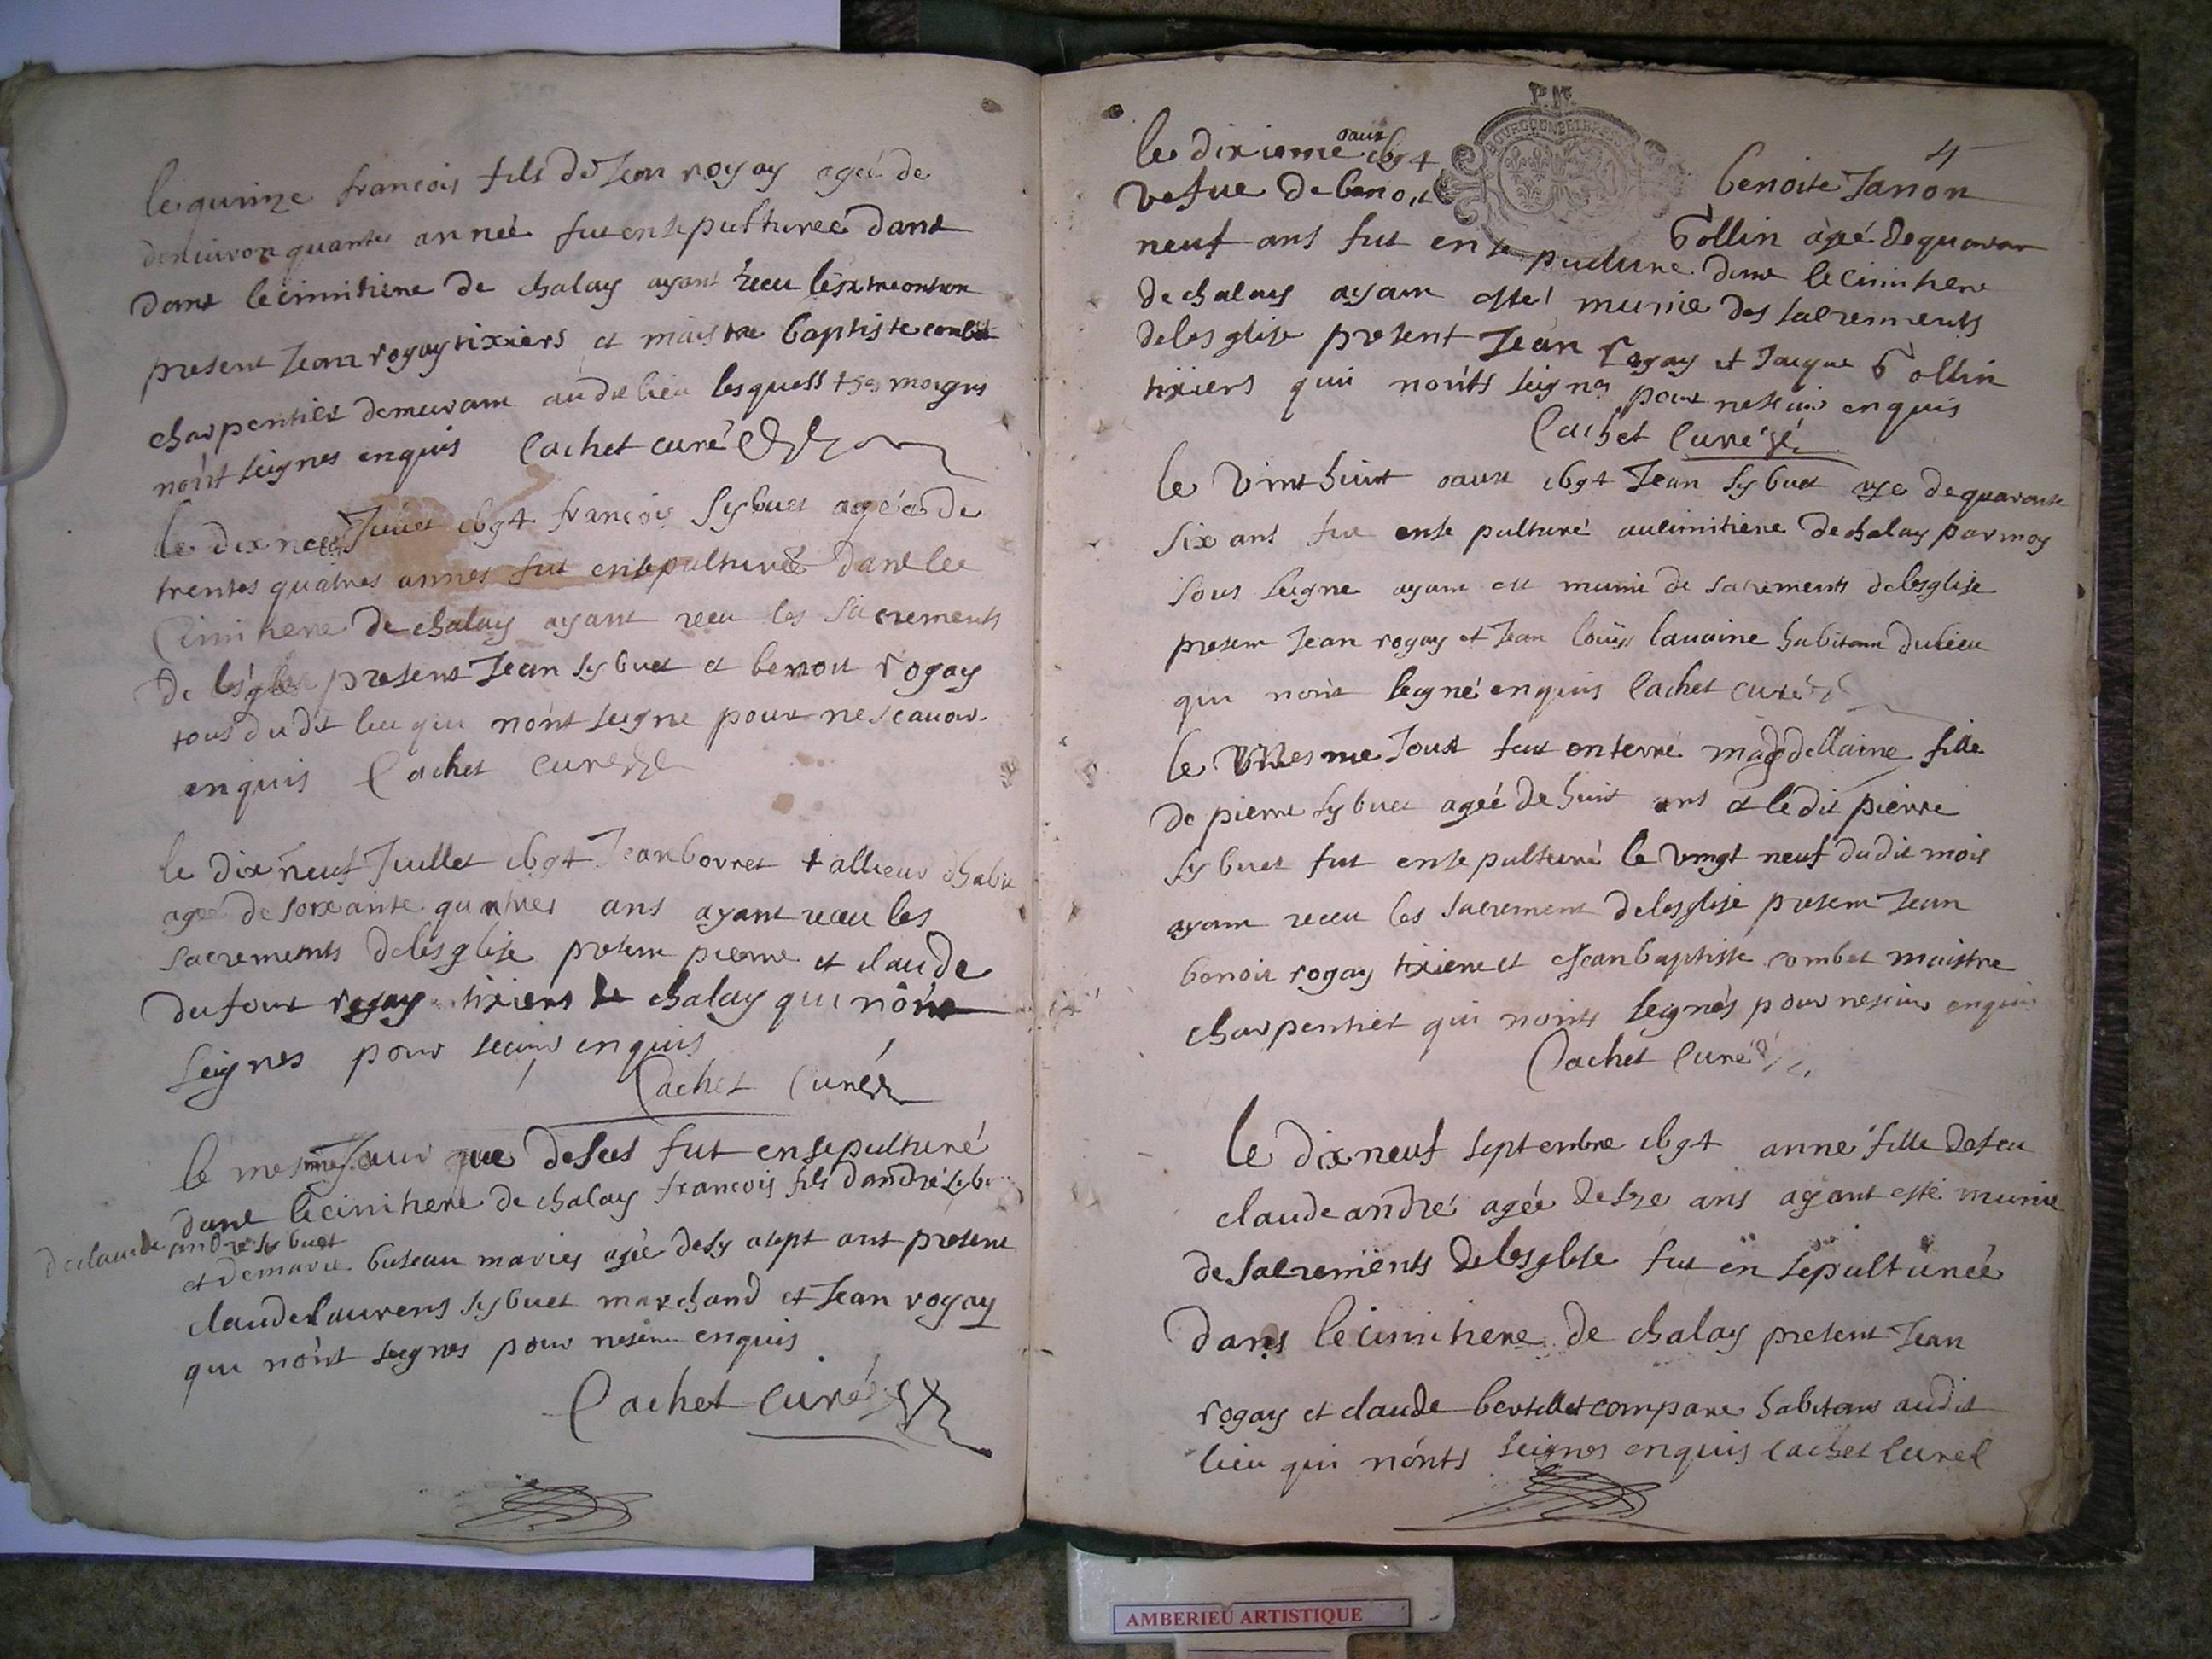 le quinze francois fils de Jean rogay agée de
denuiron quantes année fut ensepulturée dans
dans le cimitiere de chalay ayant receu
present Jean rogay tixiers et maistre baptiste combet
charpentier demeurant audit lieu lesquels
nont seignes enquis Cachet curé
le dix neuf Juillet 1694 francois sybuet agée de
trentes quatres annes fut ensepulturée dans le
Cimitiere de chalay ayant receu les sacrements
de lesglise present Jean sybuet et benoit rogay
tous du dit lieu qui nont seigne pour ne scauoir
enquis Cachet curé
le dix neuf Juillet 1694 Jean borret tallieur
agée de soixante quatres ans ayant receu les
sacrements de lesglise present pierre et claude
dufour rogay tixiers de chalay qui nont
seignes pour scauoir enquis
Cachet Curé
le mesme Jour que desus fut ensepulturé
dans le cimitiere de chalay francois fils dandré
de claude andre sybuet
et de marie buseau maries agée de sept ans present
claude laurens sybuet marchand et Jean rogay
qui nont seignes pour enquis
Cachet curé
P. M.
BOURGOGNE ET BRESSE
4
le dixieme aoust 1694 benoite Janon
vefue de benoit Gollin agé de quaran
neuf ans fut ensepulture dans le cimitiere
de chalay ayant esté munie des sacrements
de lesglise present Jean rogay et Jacque Gollin
tixiers qui nonts seignes pour enquis
Cachet Curé
le vint huict aoust 1694 Jean sybuet age de quarante
six ans fut ensepulturé au cimitiere de chalay par moy
sous seigne ayant esté muni de sacrements de lesglise
present Jean rogay et Jean louis lauaine habitant du lieu
qui nont seigné enquis Cachet curé
le Joust fut enterré magdellaine fille
de pierre sybuet agée de huit ans et le dit pierre
sybuet fut ensepulturé le vingt neuf dudit mois
ayant receu les sacrement de lesglise present Jean
benoit rogay tixier et Jean baptiste combet maistre
charpentier qui nonts seignés pour enquis
Cachet Curé
Le dix neuf septembre 1694 anne fille de feu
claude andré agée de ans ayant esté munie
de sacrements de lesglise fut ensepulturée
dans le cimitiere de chalay present Jean
rogay et claude bertellet compare habitans audit
lieu qui nonts seignes enquis cachet curé
AMBERIEU ARTISTIQUE